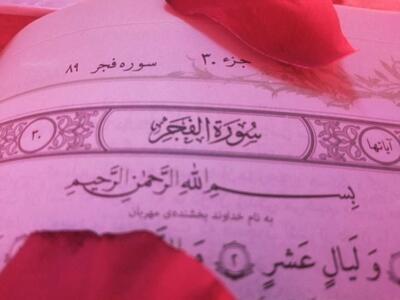 جزء ۳۰ سوره فجر ۸۹
آیاتها سُورَةُ الفَجرِ ۳۰
بِسمِ اللهِ الرَّحمٰنِ الرَّحیمِ
به نام خداوند بخشنده‌ی مهربان
وَلَيَالٍ عَشْرٍ ۲